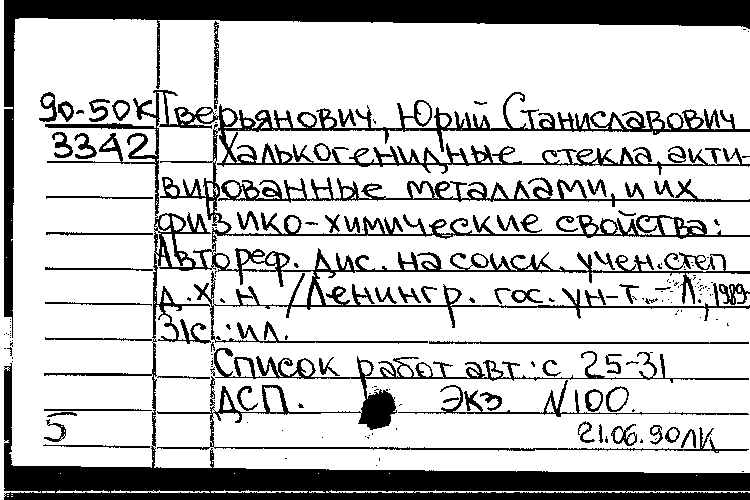 90-50К Тверьянович, Юрий Станиславович
3342 Халькогенидные стекла, акти-
вированные металлами, и их
физико-химические свойства:
Автореф. дис. на соиск. учен. степ
д.х.н. /Ленингр. гос. ун-т. - Л., 1989-
31с.:ил.
Список работ авт.: с 25-31
ДСП. Экз. N100.
5 21.06.90ЛК